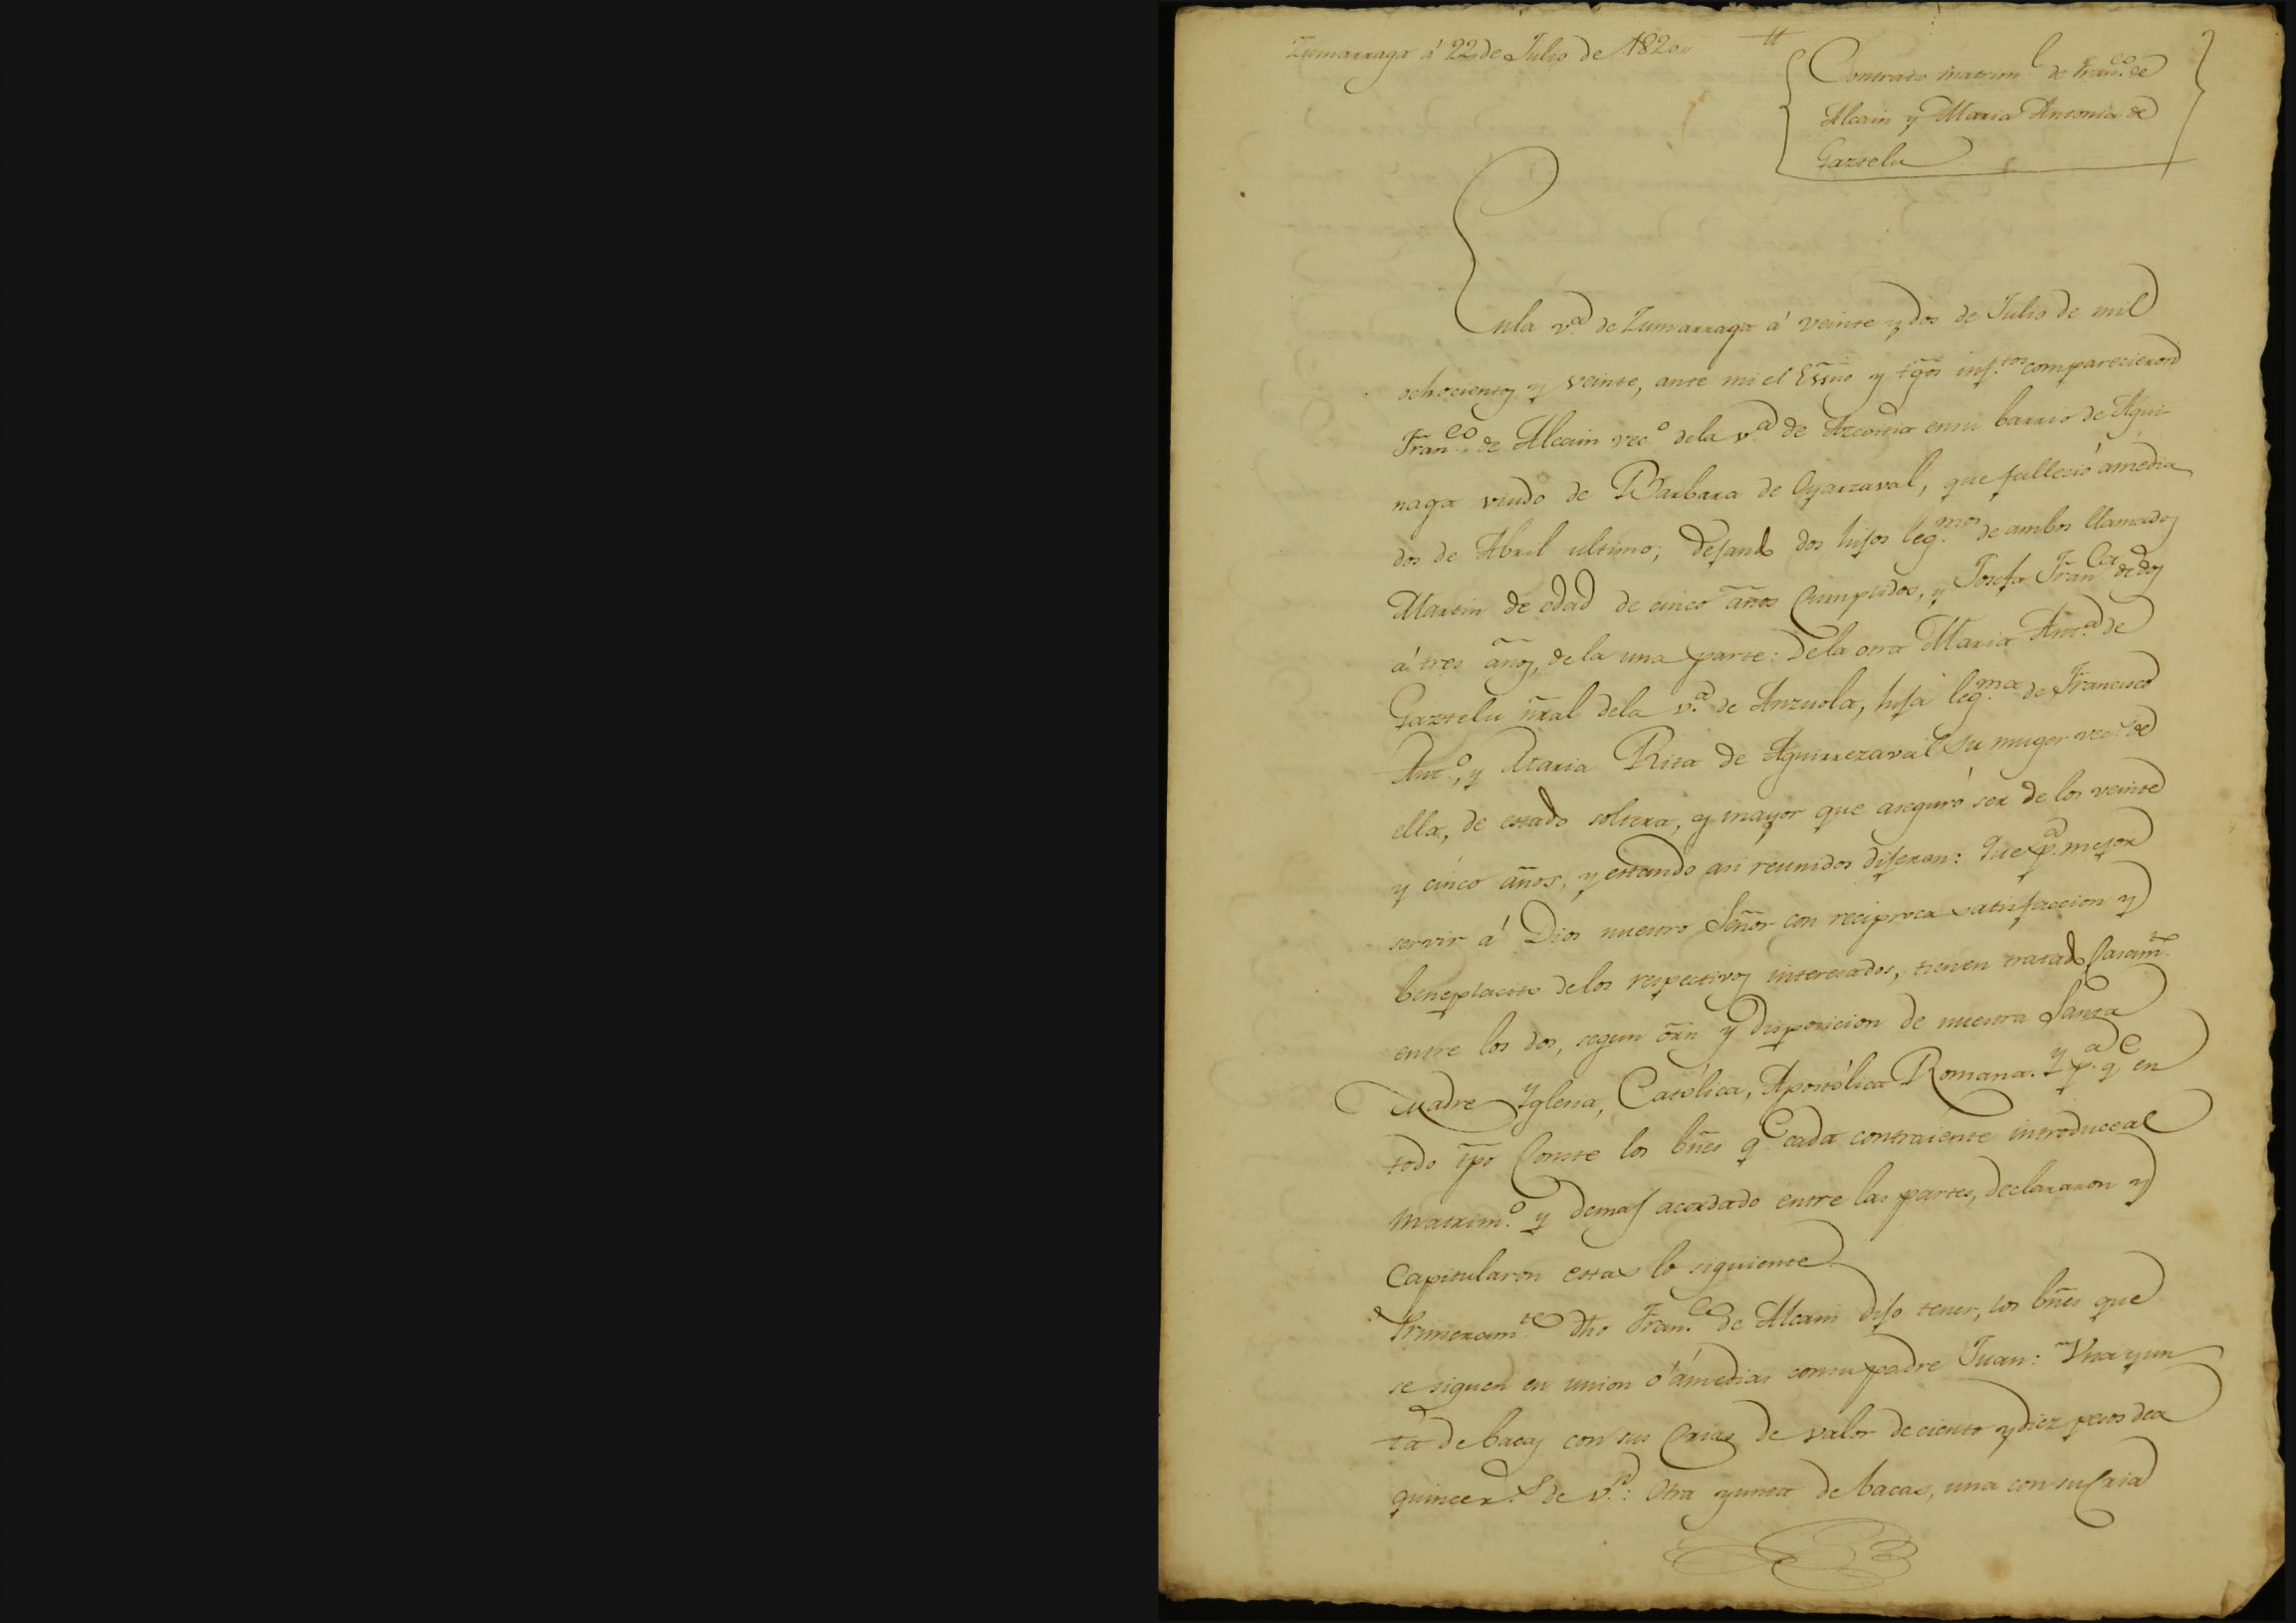 Zumarraga á 22 de Julio de 1820,,
Contrato matrim.l de Fran.co de
Alcain y Maria Antonia de
Gaztelu
Enla v.a de Zumarraga á veinte y dos de Julio de mil
ochocientos y veinte, ante mi el Essno y tgos inf.tos comparecieron
Fran.co de Alcain vec.o dela v.a de Azcoitia ensu barrio de Agui-
naga viudo de Barbara de Oyarzaval, que falleció ámedia
dos de Abril ultimo, dejando dos hijos leg.mos de ambos llamados
Martin de edad de cinco años Cumplidos, y Josefa Fran.ca de dos
á tres años, dela una parte: Dela otra Maria Ant.a de
Gaztelu ñral dela v.a de Anzuola, hija leg.ma de Francisco
Ant.o, y Maria Rita de Aguirrezaval su muger vec.s de
ella, de estado soltera, y mayor que aseguró ser de los veinte
y cinco años, y estando asi reunidos dijeron: Que p.a mejor
servir á Dios nuestro Señor con reciproca satisfaccion y
beneplacito delos respectivos interesados, tienen tratado Casam.to
entre los dos, segun orñ y disposicion de nuestra Santa
Madre Yglesia, Católica, Apostólica Romana. Y p.a q.e en
todo tpo Conste los bñes q.e cada contraiente introduce al
matrim.o y demas acordado entre las partes, declararon y
Capitularon estas lo siguiente
Primeram.te dho Fran.co de Alcain dijo tener, los bñes que
se siguen en union ó ámedias consu padre Juan: Vna yun
ta de bacas con sus Crias de valor de ciento y diez pesos dea
quince r.s de v.n: Otra yunta de bacas, una con su Cria